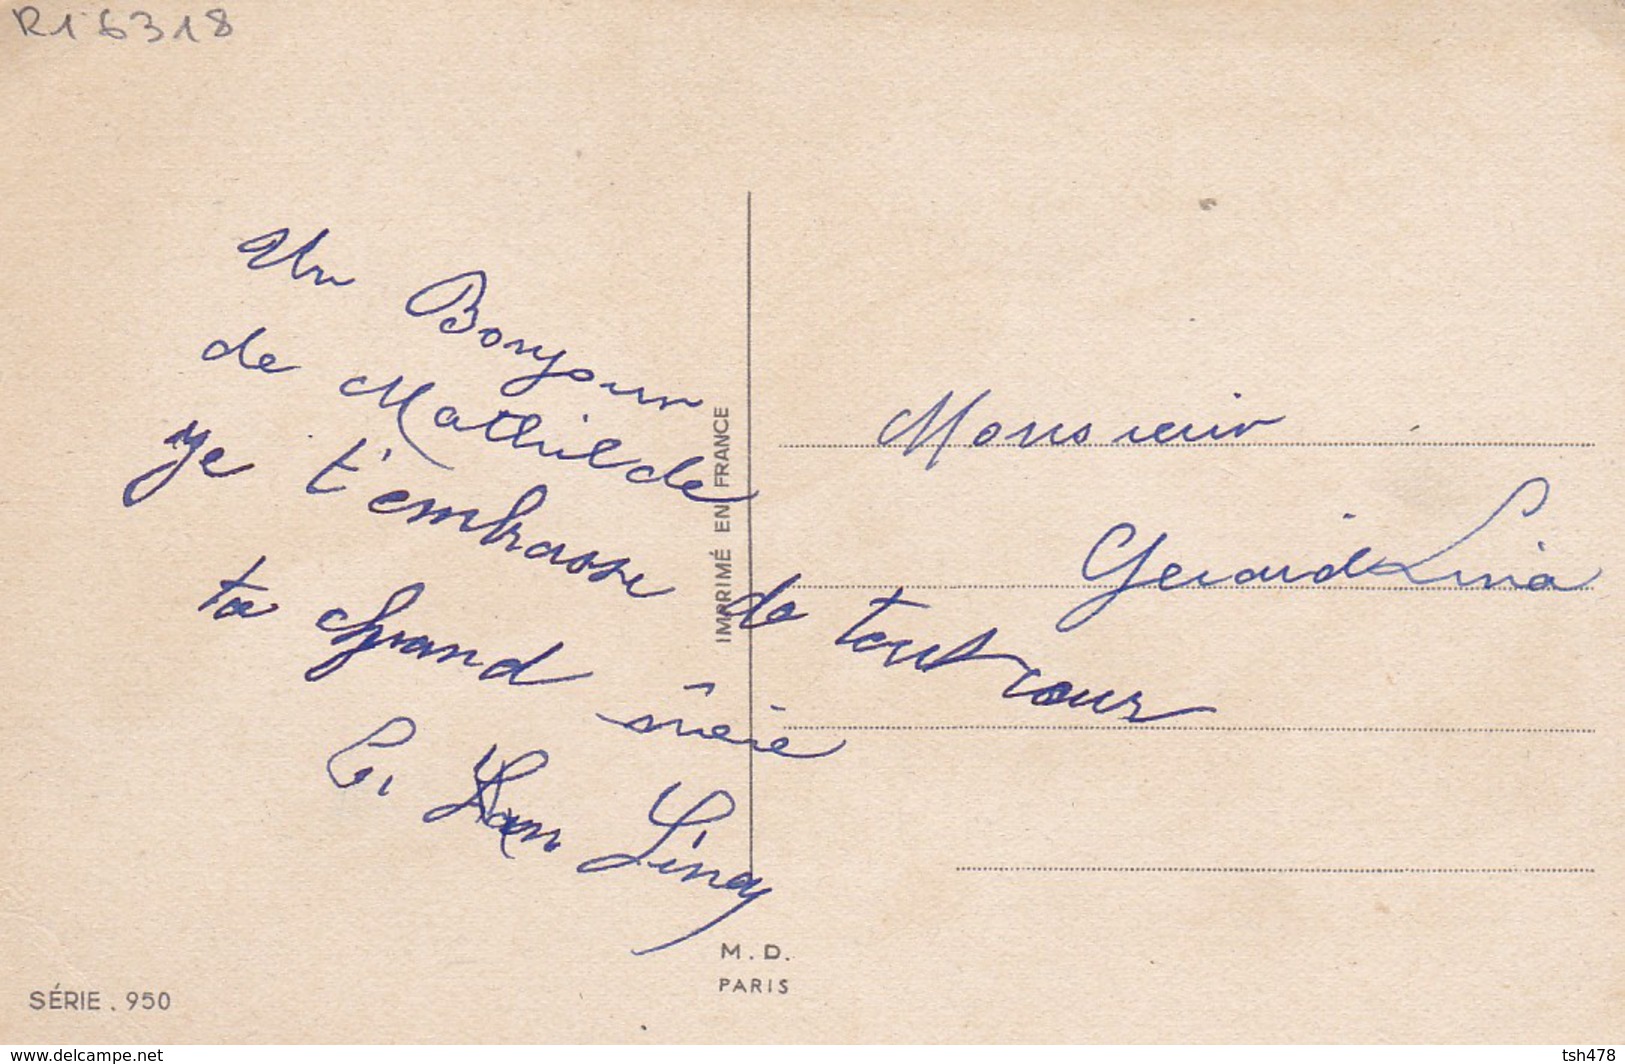 R16318
Un Bonjour
de Mathilde
je t'embrasse de tout cour
ta grand mère
Lina
Monsieur
Gerard Lina
IMPRIMÉ EN FRANCE
M. D.
PARIS
SÉRIE . 950
www.delcampe.net
tsh478